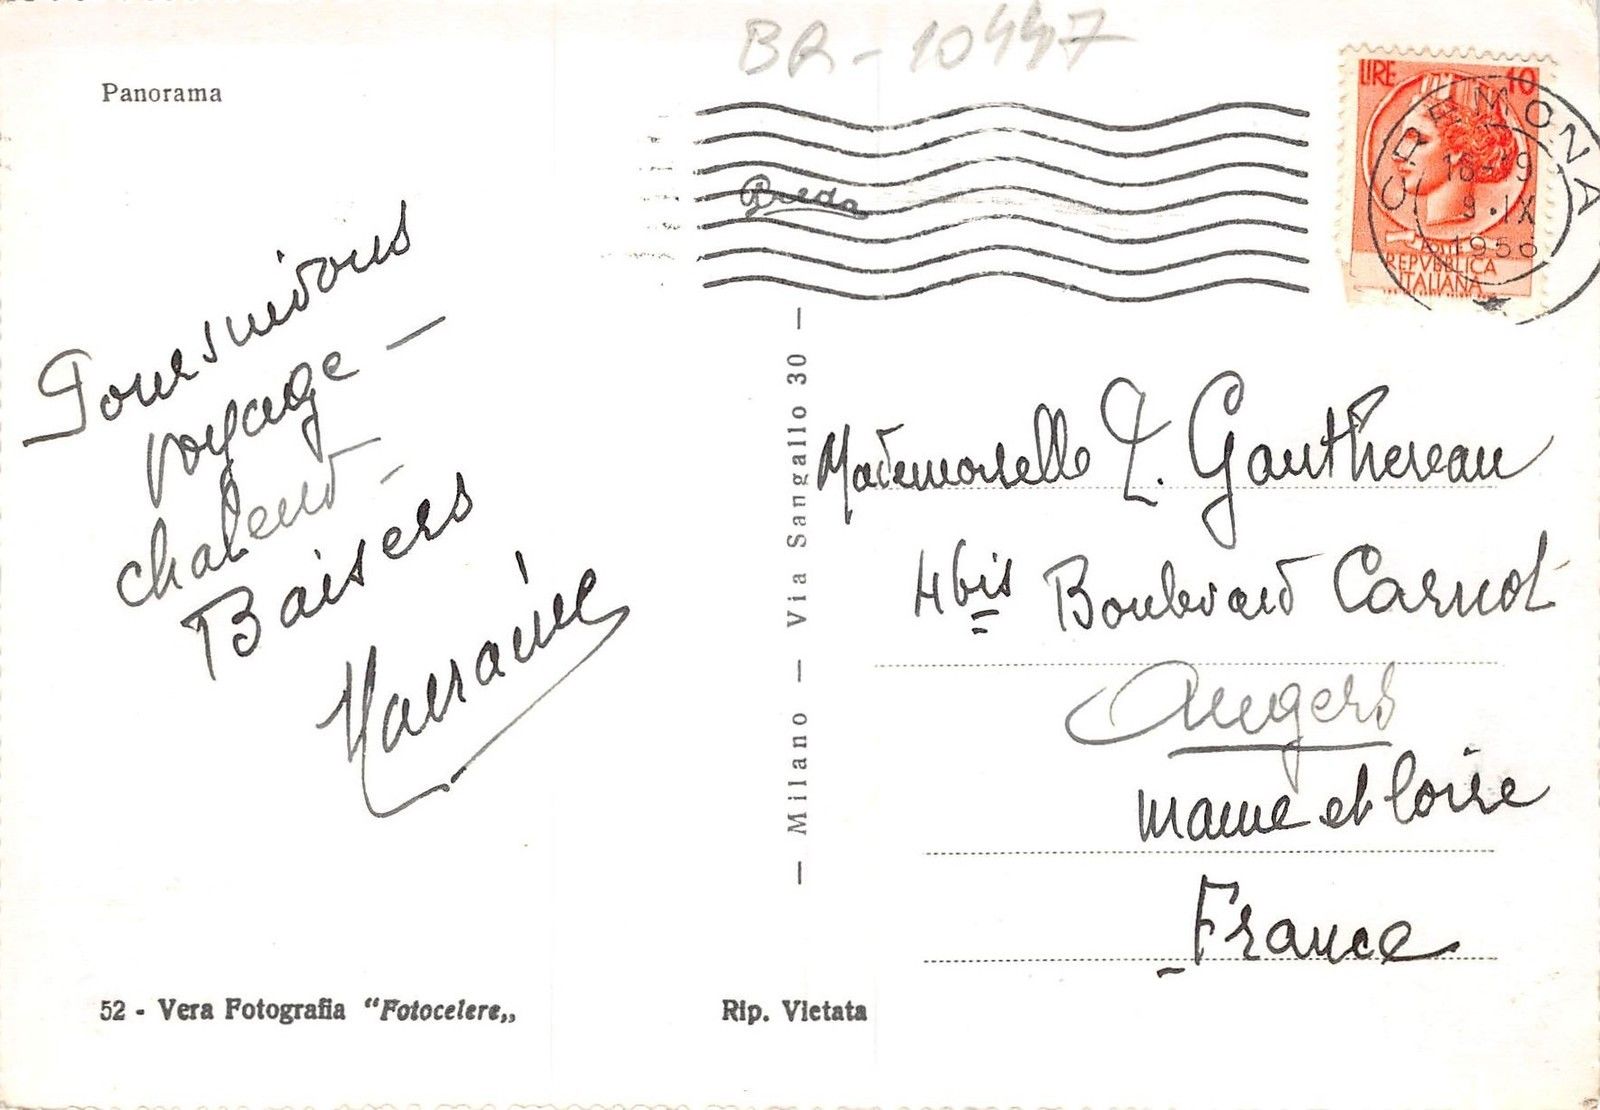 BR-10447
Panorama
LIRE 10
CREMONA
16-19
9.IX
1956
POSTE
REPVBBLICA
ITALIANA
Breda
Poursuivons
voyage —
chaleur -
Baisers
Marraine
— Milano — Via Sangallo 30 —
Mademoiselle J. Gauthereau
4 bis Boulevard Carnot
Angers
Maine et Loire
France
52 - Vera Fotografia "Fotocelere„
Rip. Vietata